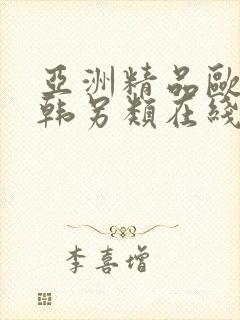 亞洲精品歐
韩另類在綫
李喜增